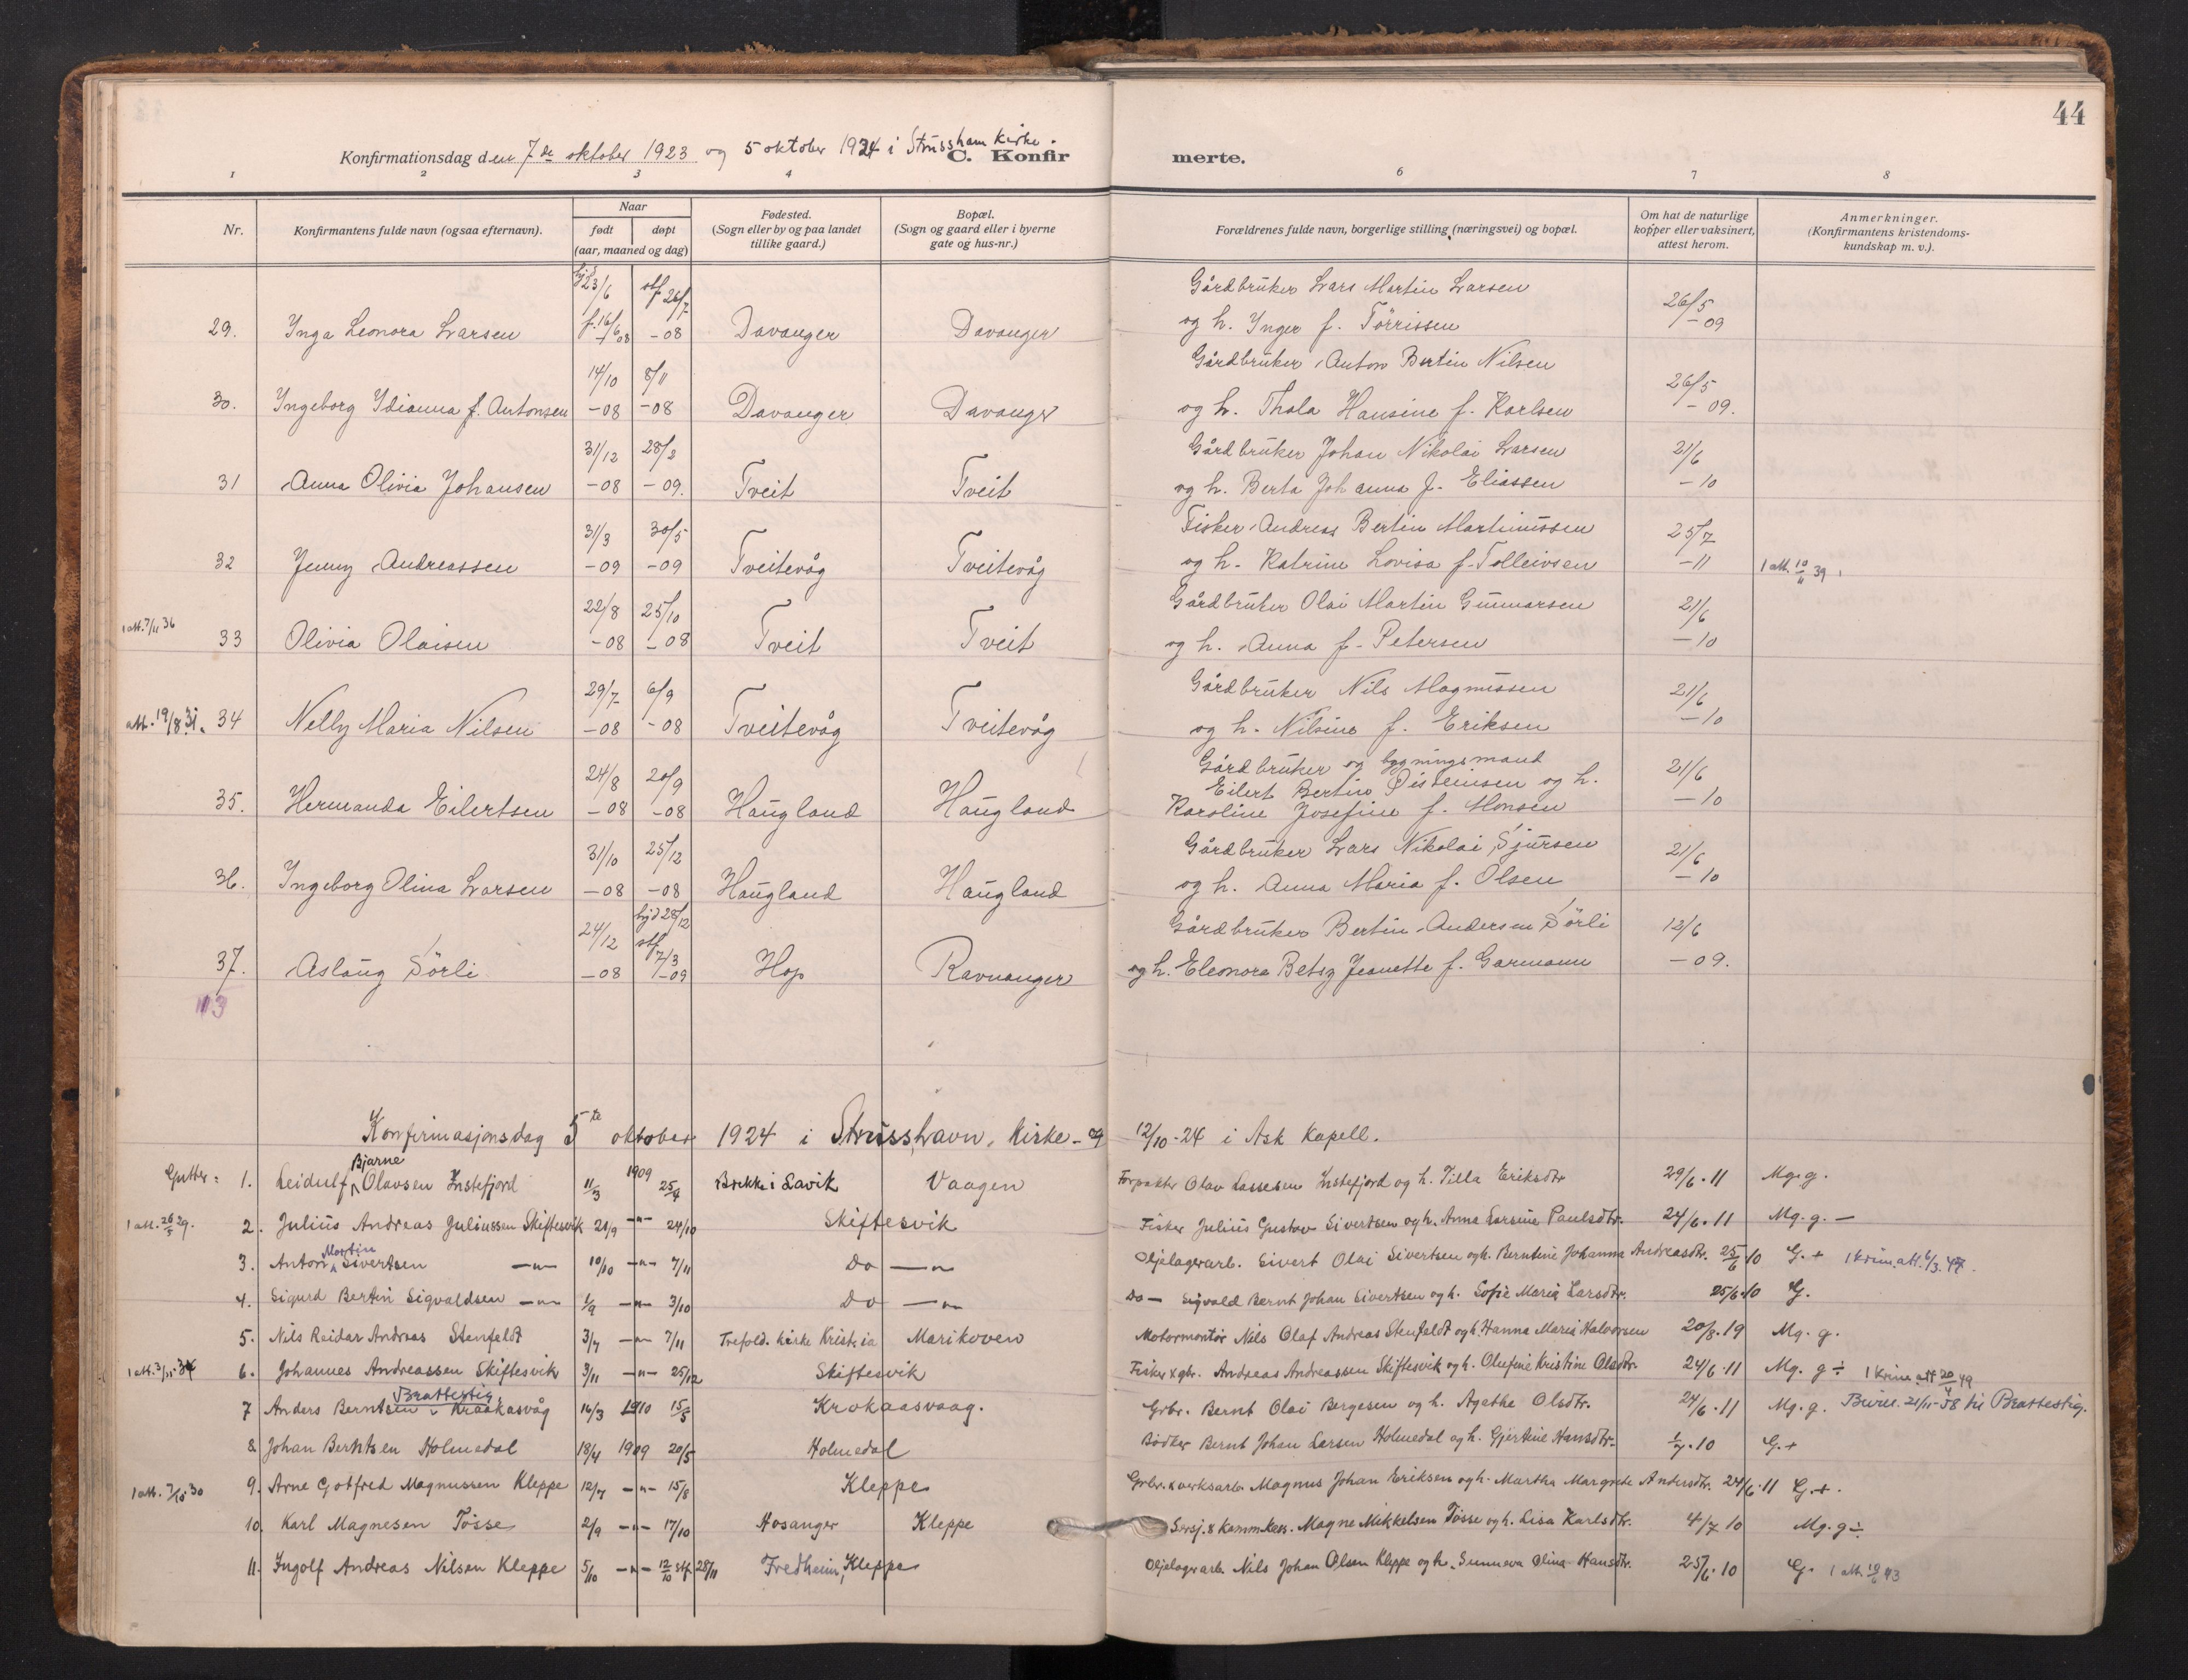 44
Konfirmationsdag den 7de oktober 1923 og 5 oktober 1924 i Strussham kirke.
C. Konfirmerte.
1 2 3 4 6 7 8
Nr.
Konfirmantens fulde navn (ogsaa efternavn).
Naar
født døpt
(aar, maaned og dag)
Fødested.
(Sogn eller by og paa landet
tillike gaard.)
Bopæl.
(Sogn og gaard eller i byerne
gate og hus-nr.)
Forældrenes fulde navn, borgerlige stilling (næringsvei) og bopæl.
Om hat de naturlige
kopper eller vaksinert,
attest herom.
Anmerkninger.
(Konfirmantens kristendoms-
kundskap m. v.).
hjd 23/6 stf 26/7 Gårdbruker Lars Martin Larsen 26/5
29. Inga Leonora Larsen f. 16/6 08 -08 Davanger Davanger og h. Inger f. Törrissen -09
14/10 8/11 Gårdbruker Anton Bertin Nilsen 26/5
30. Ingeborg Idianna f. Antonsen -08 -08 Davanger Davanger og h. Thala Hansine f. Karlsen -09.
31/12 28/2 Gårdbruker Johan Nikolai Larsen 21/6
31 Anna Olivia Johansen -08 -09. Tveit Tveit og h. Berta Johanna f. Eliassen -10
31/3 30/5 Fisker Andreas Bertin Martinussen 25/7
32 Jenny Andreassen -09 -09 Tveitevåg Tveitevåg og h. Katrine Lovisa f. Tolleivsen -11 1 att. 10/11 39
22/8 25/10 Gårdbruker Olai Martin Gunnarsen 21/6
1 att. 7/11 36 33 Olivia Olaisen -08 -08 Tveit Tveit og h. Anna f. Petersen -10
29/7 6/9 Gårdbruker Nils Magnussen 21/6
att. 19/8 31. 34 Nelly Maria Nilsen -08 -08 Tveitevåg Tveitevåg og h. Nilsine f. Eriksen -10
Gårdbruker og bygningsmand
24/8 20/9 Eilert Bertin Øisteinsen og h. 21/6
35. Hermanda Eilertsen -08 -08 Haugland Haugland Karoline Josefine f. Monsen -10
31/10 25/12 Gårdbruker Lars Nikolai Sjursen 21/6
36. Ingeborg Olina Larsen -08 -08 Haugland Haugland og h. Anna Maria f. Olsen -10
24/12 hjd 28/12 stf 7/3 Gårdbruker Bertin Andersen Sörli 12/6
37. Aslaug Sörli -08 -09 Hop Ravnanger og h. Eleonora Betsy Jeanette f. Garmann -09.
113
Konfirmasjonsdag 5te oktober 1924 i Strusshavn, kirke - og 12/10-24 i Ask kapell.
Gutter: 1. Leidulf Bjarne Olavsen Instefjord 11/3 1909 25/4 Brekke i Lavik Vaagen Forpakter Olav Lassesen Instefjord og h. Tilla Eriksdtr 29/6.11 Mg. g.
1 att. 26/5 29. 2. Julius Andreas Juliussen Skiftesvik 21/9 -"- 24/10 Skiftesvik Fisker Julius Gustav Sivertsen og h. Anna Larsine Paulsdtr. 24/6.11 Mg. g. -
3. Anton Martin Sivertsen -"- 10/10 -"- 7/11 Do -"- Oljelagerarb. Sivert Olai Sivertsen og h. Berntine Johanna Andreasdtr. 25/6 10 G. + 1 krim.att. 6/3. 47.
4. Sigurd Bertin Sigvaldsen -"- 1/9 -"- 3/10 Do -"- Do - Sigvald Bernt Johan Sivertsen og h. Sofie Maria Larsdtr. 25/6.10 G.
5. Nils Reidar Andreas Stenfeldt 3/7 -"- 7/11 Trefold. kirke Krist.ia Marikoven Motormontör Nils Olaf Andreas Stenfeldt og h. Hanna Maria Halvorsen 20/8.19 Mg. g.
1 att. 3/11 34 6. Johannes Andreassen Skiftesvik 3/11 -"- 25/12 Skiftesvik Fisker x gbr. Andreas Andreassen Skiftesvik og h. Olufine Kristine Olsdtr. 24/6.11 Mg. g ÷ 1 krim att 20/4 49
7 Anders Berntsen Brattestig Kraakasvåg 16/3 1910 15/5 Krokaasvaag. Grbr. Bernt Olai Bergesen og h. Agathe Olsdtr. 24/6.11 Mg. g. Bevill. 21/11-58 til Brattestig.
8 Johan Berntsen Holmedal 18/4 1909 20/5 Holmedal Bödker Bernt Johan Larsen Holmedal og h. Gjertine Hansdtr. 1/7.10 G. +
9. Arne Gotfred Magnussen Kleppe 12/7 -"- 15/8 Kleppe Grbr. x verksarb. Magnus Johan Eriksen og h. Martha Margrete Andersdtr. 24/6.11 G. +.
10. Karl Magnesen Tösse 2/9 -"- 17/10 Hosanger Kleppe Sersj. & komm.kass. Magne Mikkelsen Tösse og h. Lisa Karlsdtr. 4/7 10 Mg. g ÷
11. Ingolf Andreas Nilsen Kleppe 5/10 -"- 12/10 stf 28/11 Fredheim, Kleppe Oljelagerarb. Nils Johan Olsen Kleppe og h. Sunneva Olina Hansdtr. 25/6.10 G. 1 att. 10/6 43